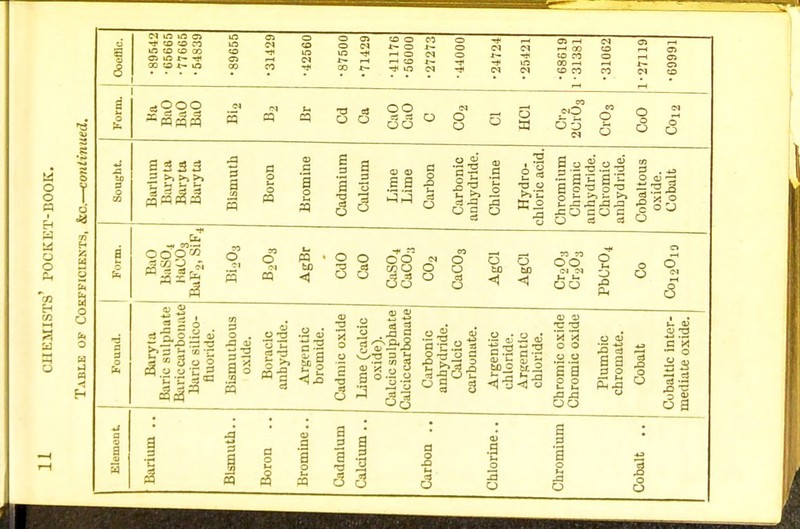 11 CHEMISTS' POCKET-BOOK.
TABLE OF COEFFICIENTS, &c.—continued.
Element. Found. Form. Sought. Form. Coeffic.
Barium .. Baryta BaO Barium Ba ·89542
Baric sulphate BaSO4 Baryta BaO ·65665
Baric carbonate BaCO3 Baryta BaO ·77665
Baric silico- BaF2, SiF4 Baryta BaO ·54839
fluoride.
Bismuth.. Bismuthous Bi2O3 Bismuth Bi2 ·89655
oxide.
Boron .. Boracic B2O3 Boron B2 ·31429
anhydride.
Bromine.. Argentic AgBr Bromine Br ·42560
bromide.
Cadmium Cadmic oxide CdO Cadmium Cd ·87500
Calcium .. Lime (calcic CaO Calcium Ca ·71429
oxide).
Calcic sulphate CaSO4 Lime CaO ·41176
Calcic carbonate CaCO3 Lime CaO ·56000
Carbon .. Carbonic CO2 Carbon C ·27273
anhydride.
Calcic CaCO3 Carbonic CO2 ·44000
carbonate. anhydride.
Chlorine.. Argentic AgCl Chlorine Cl ·24724
chloride.
Argentic AgCl Hydro- HCl ·25421
chloride. chloric acid.
Chromium Chromic oxide Cr2O3 Chromium Cr2 ·68619
Chromic oxide Cr2O3 Chromic 2CrO3 1·31381
anhydride.
Plumbic PbCrO4 Chromic CrO3 ·31062
chromate. anhydride.
Cobalt .. Cobalt Co Cobaltous CoO 1·27119
oxide.
Cobaltic inter- Co12O19 Cobalt Co12 ·69991
mediate oxide.